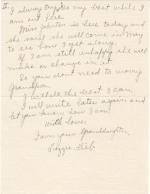 I always try to do my best while I
am out here.
Miss Weter is here today and
she said she will come in May
to see how I get along.
If I am still unhappy she will
make a change in it.
So you don't need to worry
Grandma.
I can't think of any more. I
will write later again and
let you know how I am.
With love
I am your Granddaughter,